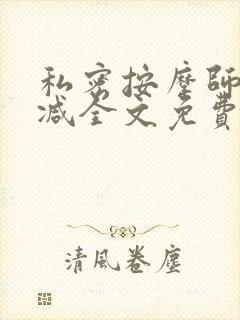 私密按摩師
减全文免費
清風卷塵